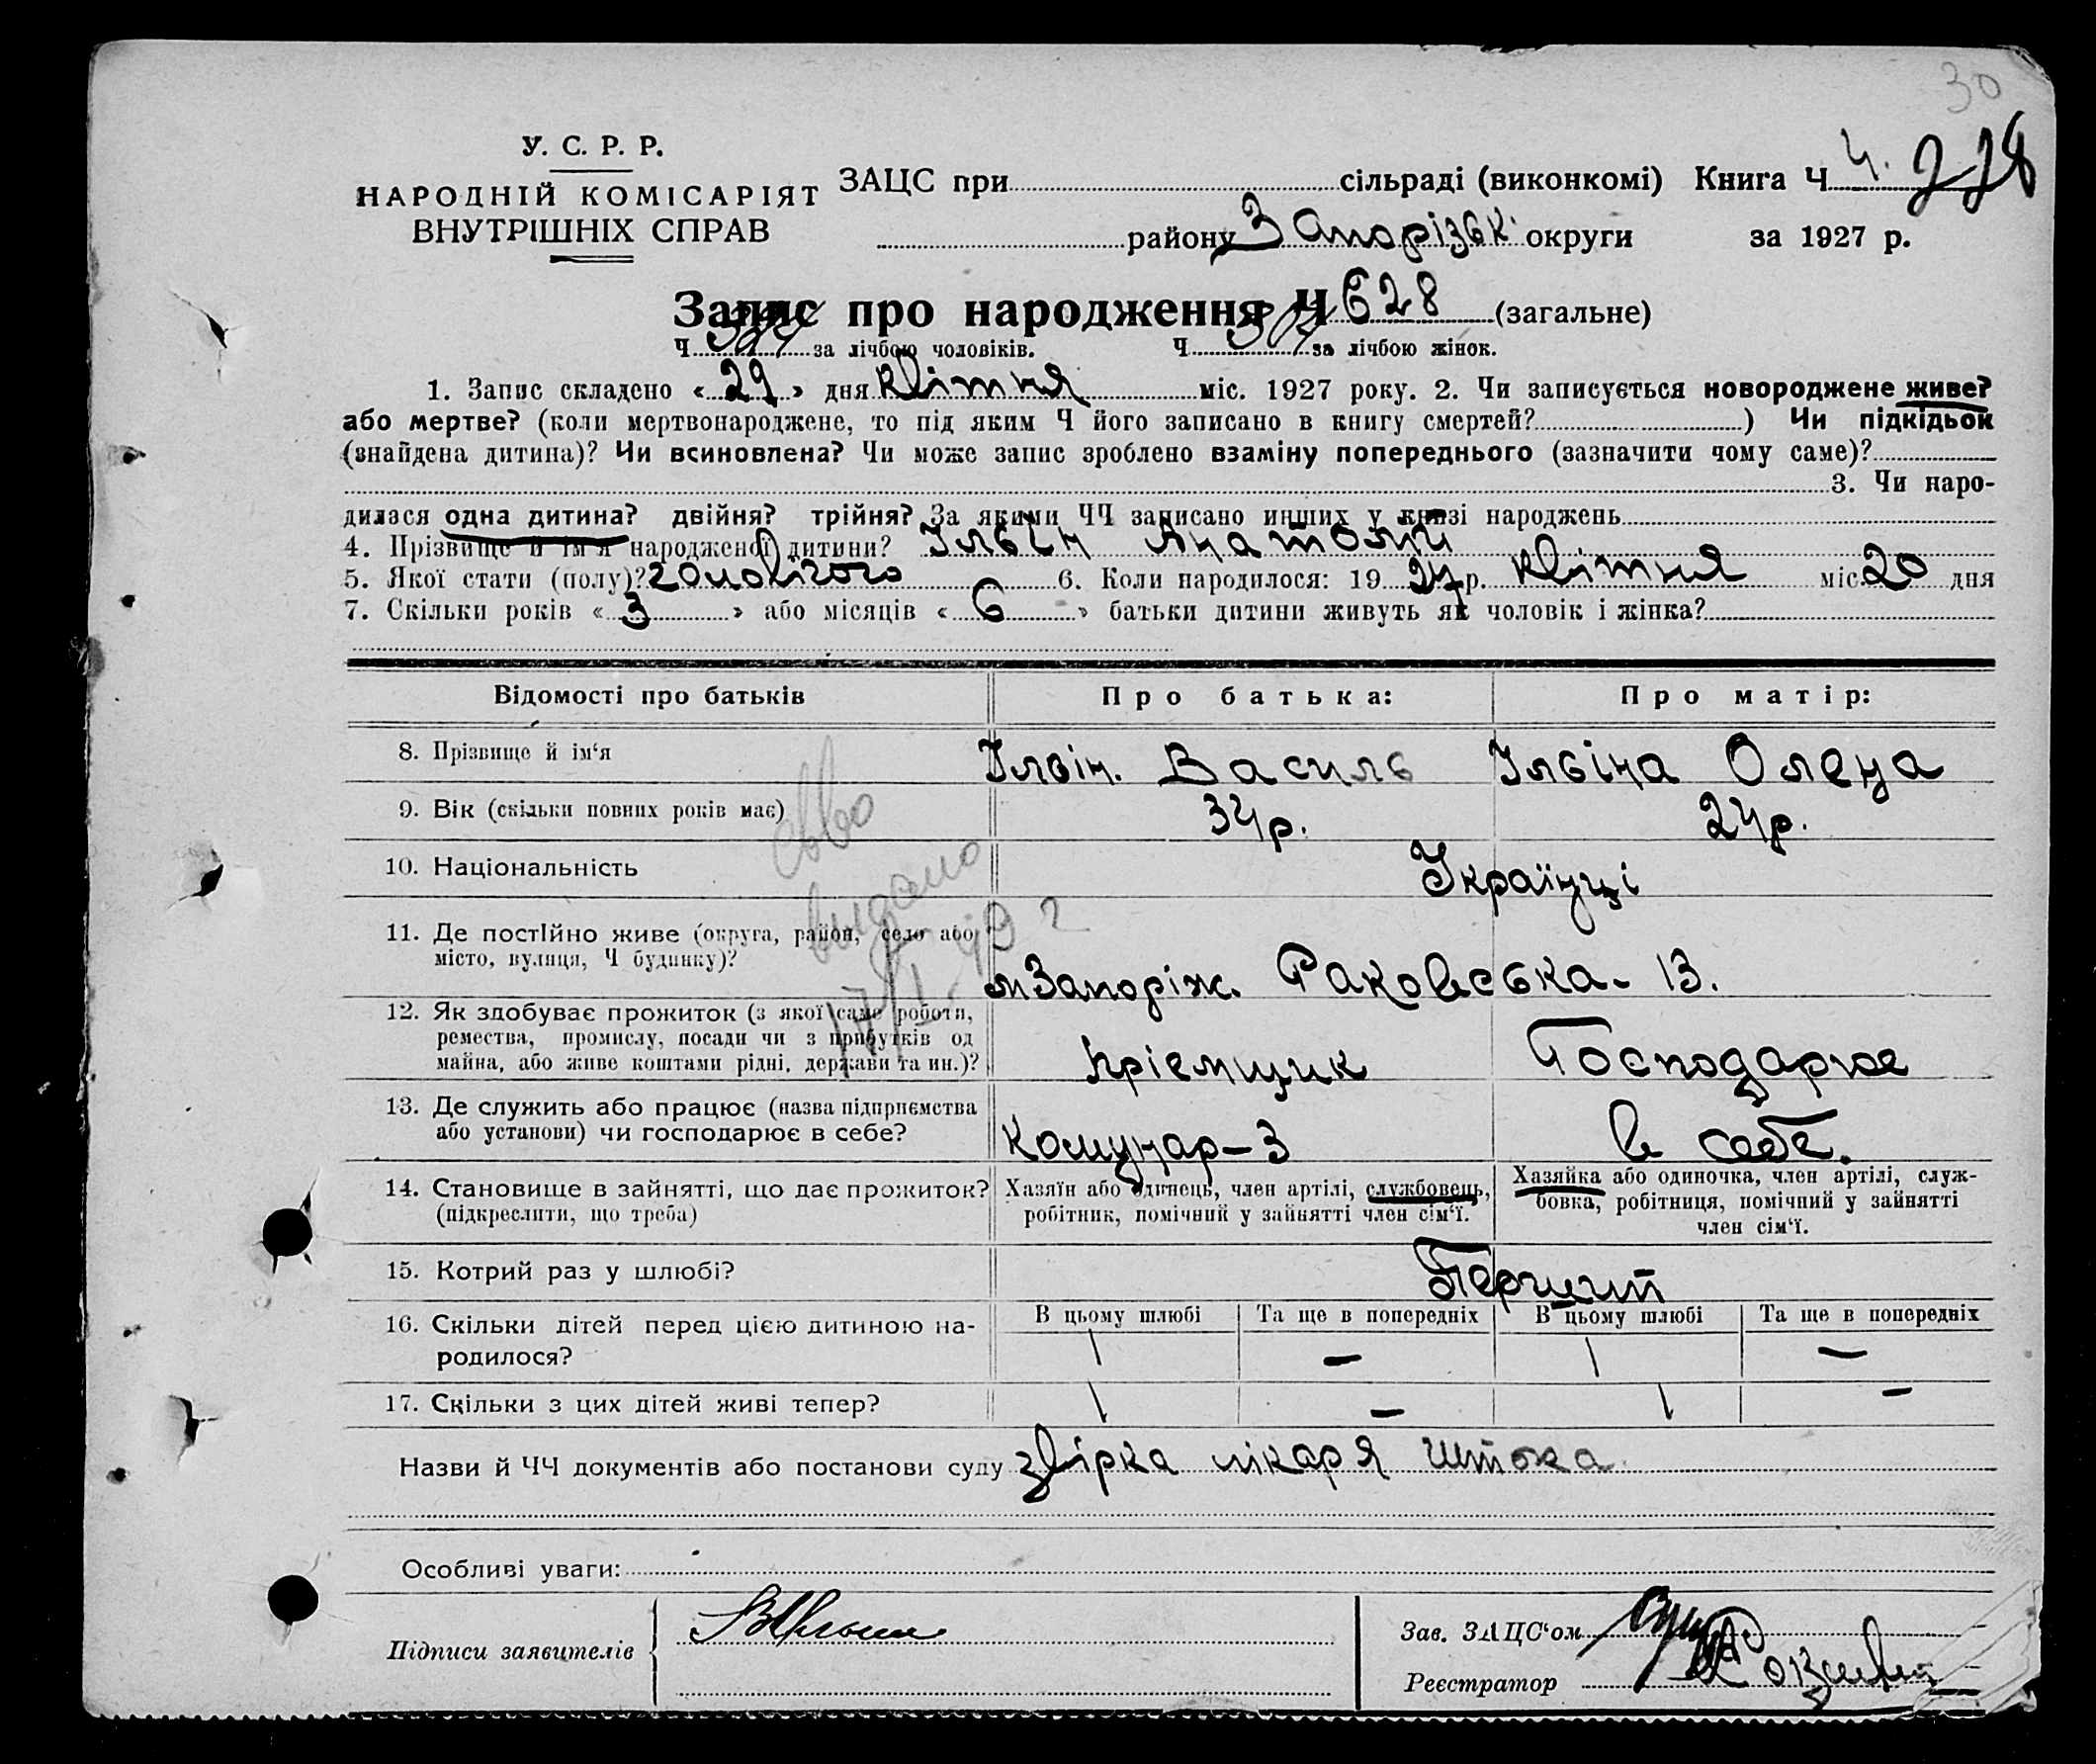 30
У. С. Р. Р.
НАРОДНІЙ КОМІСАРІЯТ
ВНУТРІШНІХ СПРАВ
ЗАЦС при сільраді (виконкомі) Книга Ч 4. 228
району Запорізьк. округи за 1927 р.
Запис про народження Ч 628 (загальне)
Ч за лічбою чоловіків. Ч за лічбою жінок.
1. Запис складено « 29 » дня квітня міс. 1927 року. 2. Чи записується новороджене живе?
або мертве? (коли мертвонароджене, то під яким Ч його записано в книгу смертей? ) Чи підкідьок
(знайдена дитина)? Чи всиновлена? Чи може запис зроблено взаміну попереднього (зазначити чому саме)?
3. Чи наро-
дилася одна дитина? двійня? трійня? За якими ЧЧ записано инших у книзі народжень
4. Прізвище й ім'я народженої дитини? Ільін Анатолій
5. Якої стати (полу)? чоловічого 6. Коли народилося: 19 27 р. квітня міс. 20 дня
7. Скільки років « 3 » або місяців « 6 » батьки дитини живуть як чоловік і жінка?
Відомості про батьків Про батька: Про матір:
8. Прізвище й ім'я Ільін. Василь Ільіна Олена
9. Вік (скільки повних років має) 34р. 24р.
10. Національність Українці
11. Де постійно живе (округа, район, село або
місто, вулиця, Ч будинку)? м Запоріж. Раковська - 13.
св-во
видано
17/I
12. Як здобуває прожиток (з якої саме роботи,
ремества, промислу, посади чи з прибутків од
майна, або живе коштами рідні, держави та ин.)? пріємщик Господарює
13. Де служить або працює (назва підприємства
або установи) чи господарює в себе? Комунар-3 в себе.
14. Становище в зайнятті, що дає прожиток?
(підкреслити, що треба)
Хазяїн або одинець, член артілі, службовець,
робітник, помічний у зайнятті член сім'ї.
Хазяйка або одиночка, член артілі, служ-
бовка, робітниця, помічний у зайнятті
член сім'ї.
15. Котрий раз у шлюбі? Перший
16. Скільки дітей перед цією дитиною на-
родилося?
В цьому шлюбі Та ще в попередніх В цьому шлюбі Та ще в попередніх
1 — 1 —
17. Скільки з цих дітей живі тепер? 1 — 1 —
Назви й ЧЧ документів або постанови суду звірка лікаря Штока
Особливі уваги:
Підписи заявителів
Зав. ЗАЦС'ом
Реєстратор